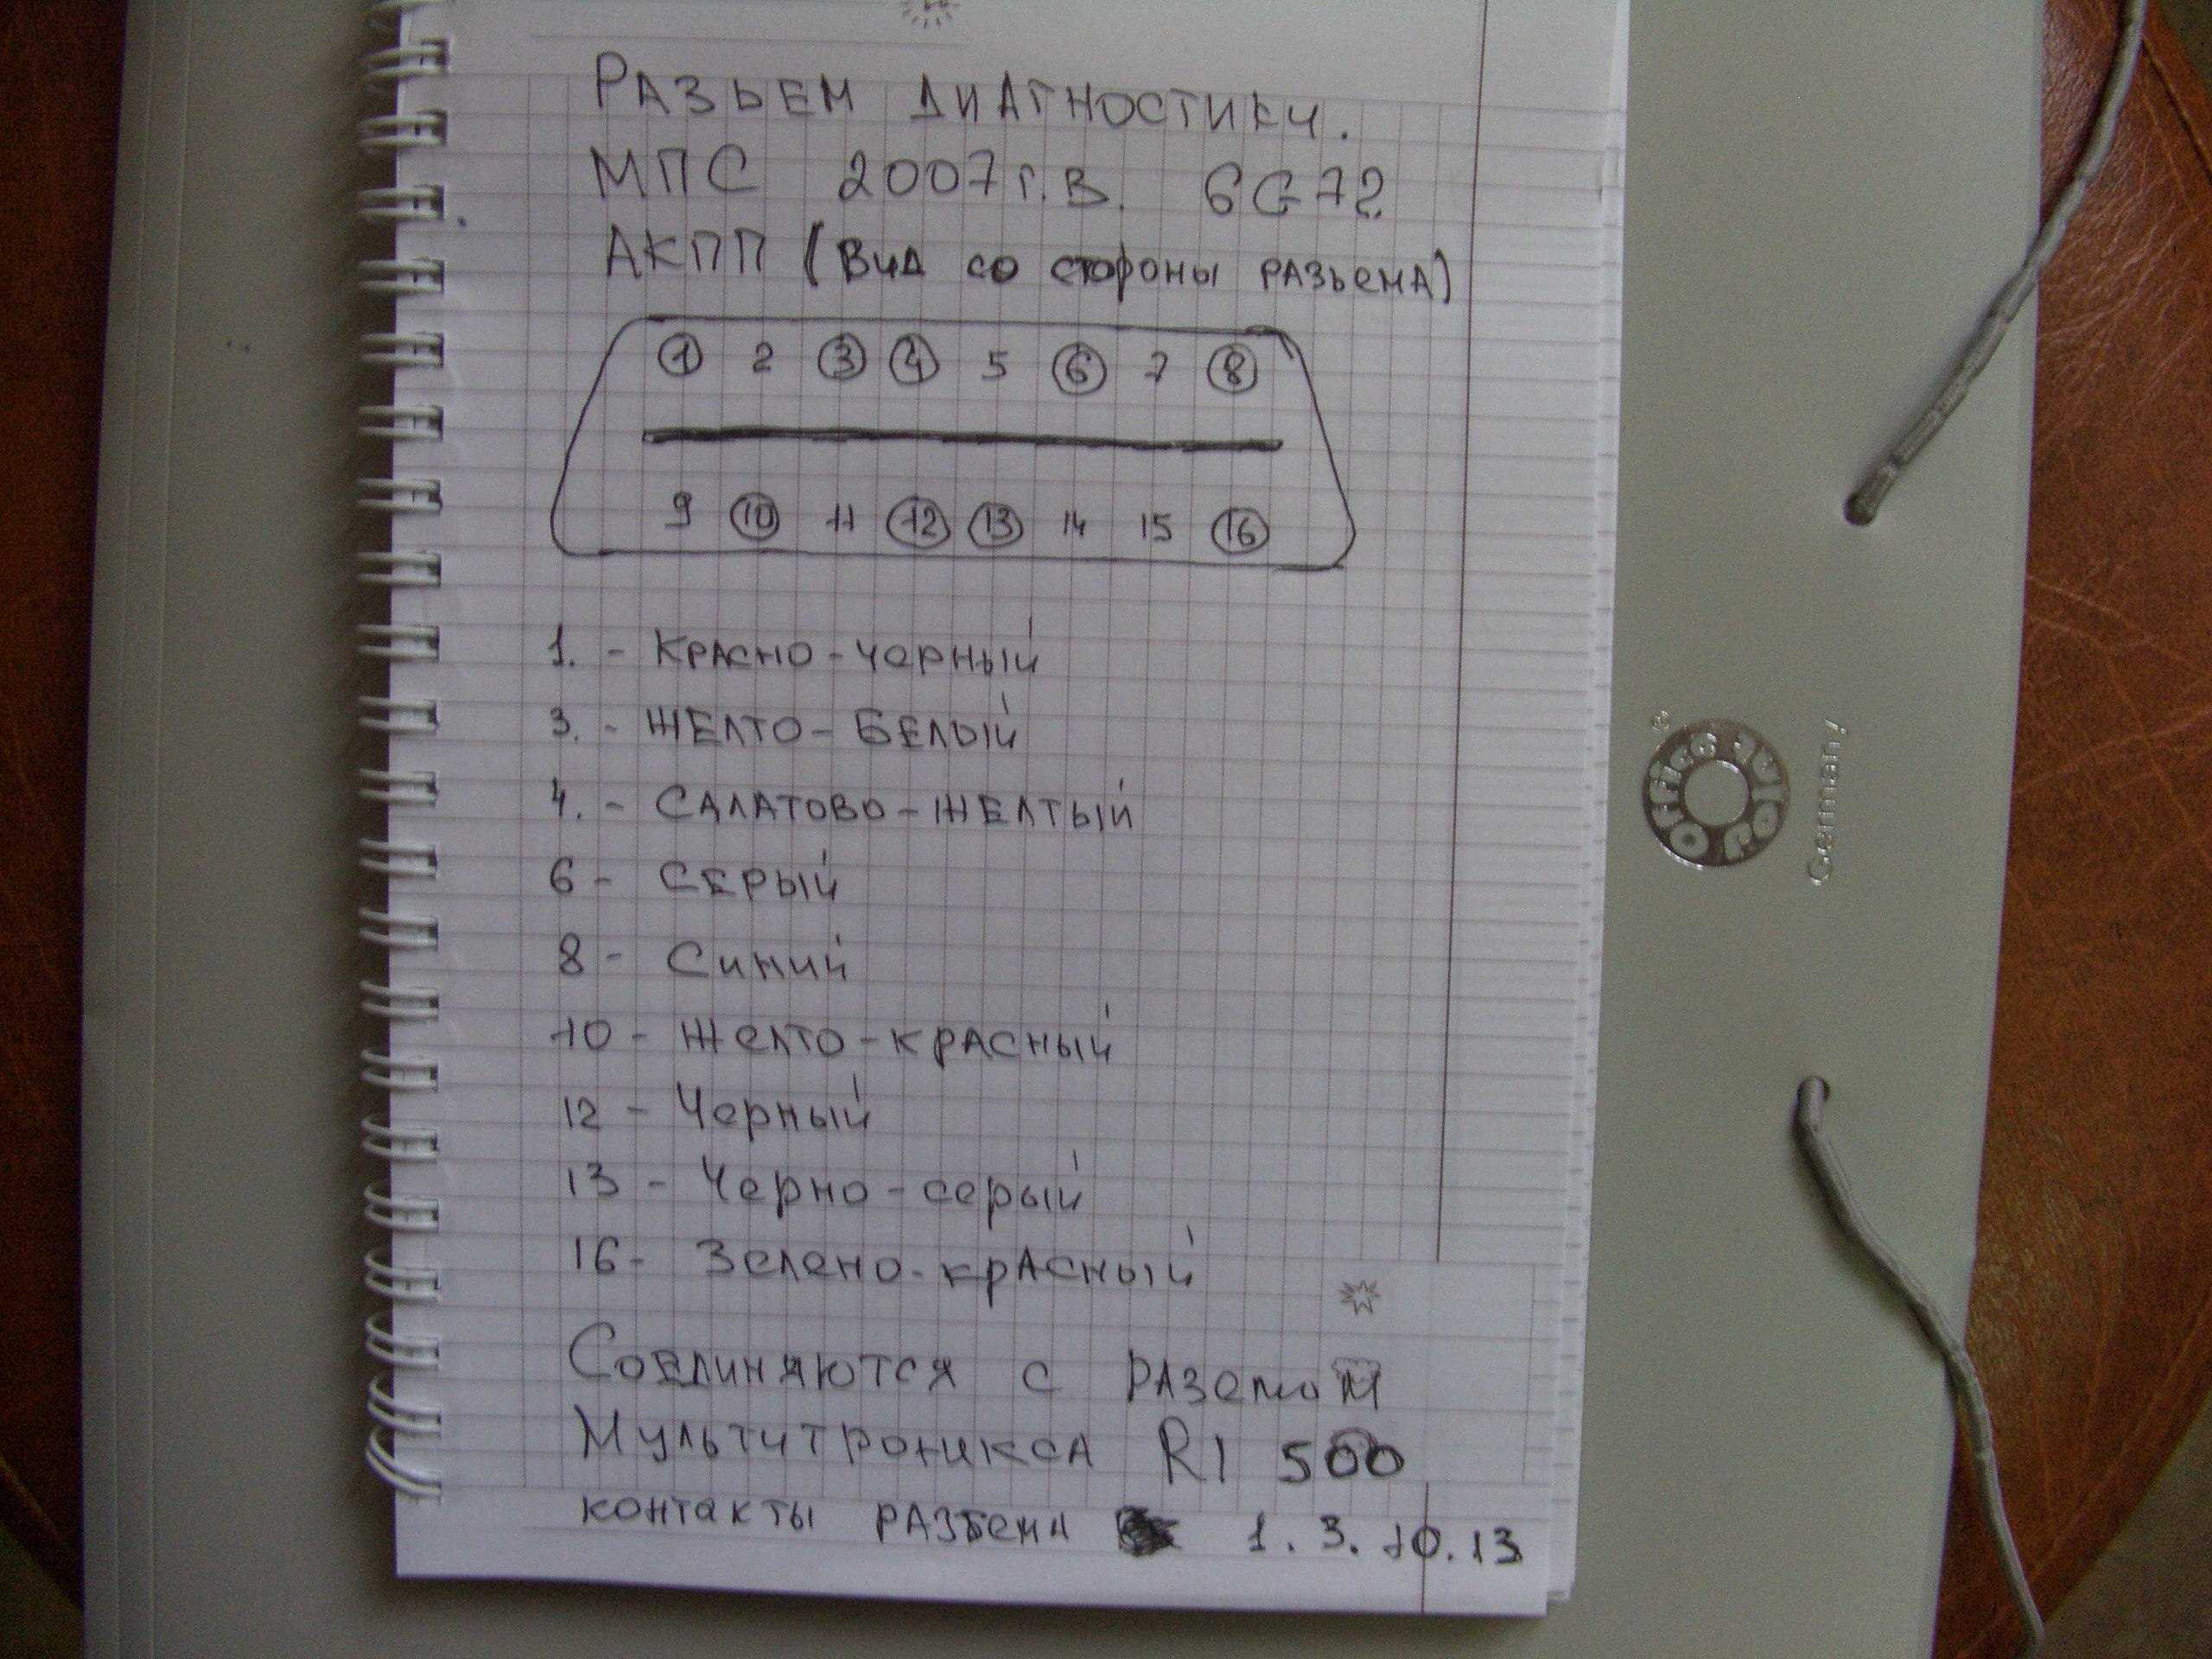 РАЗЬЕМ ДИАГНОСТИКИ.
МПС 2007г.в. 6G72
АКПП (Вид со стороны разьема)
1 2 3 4 5 6 7 8
9 10 11 12 13 14 15 16
1. - Красно-черный
3. - Желто-Белый
4. - Салатово-желтый
6 - Серый
8 - Синий
10 - Желто-красный
12 - Черный
13 - Черно-серый
16 - Зелено-красный
Соединяются с раземом
Мультитроникса RI 500
контакты разьема 1. 3. 10. 13
Office Point ®
Germany